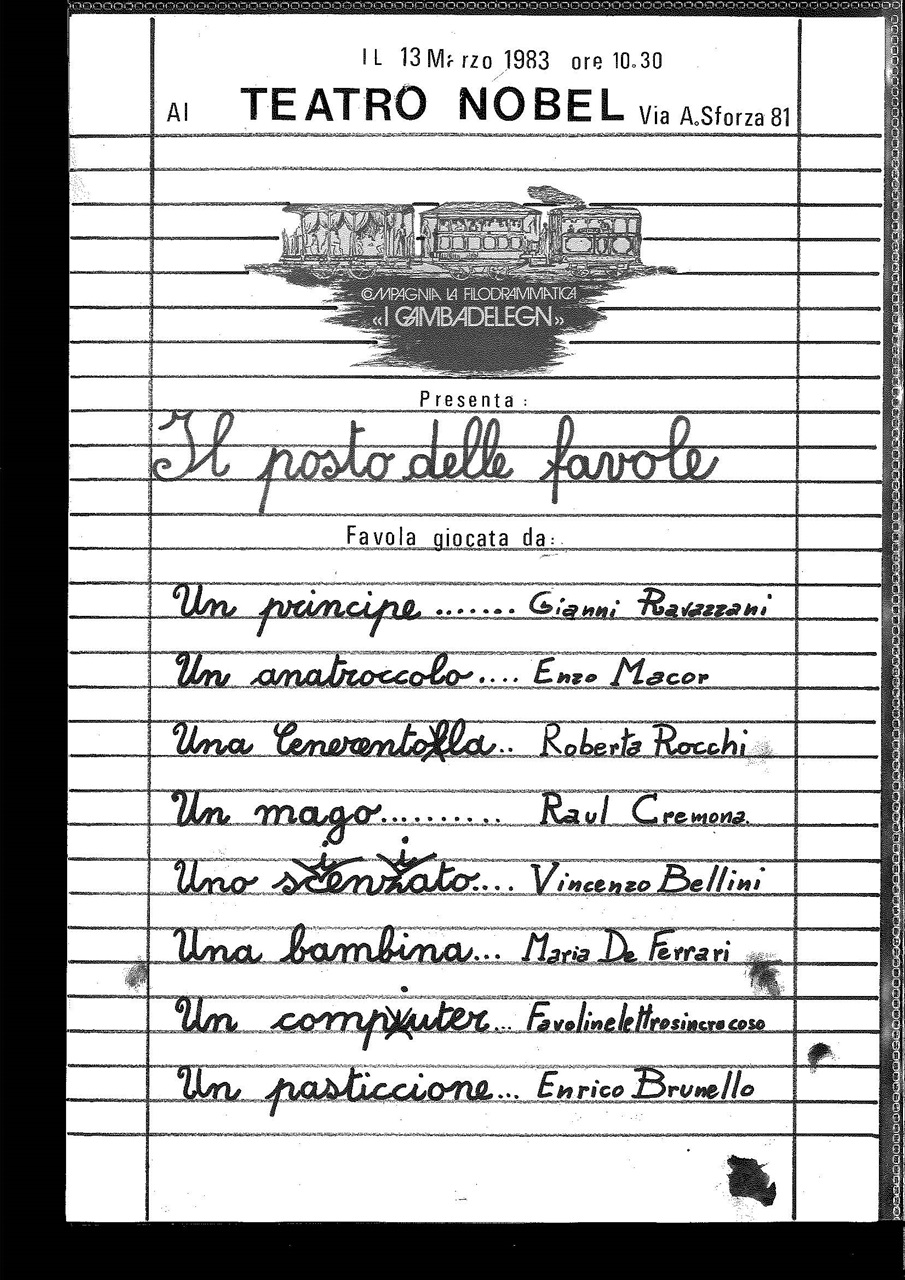 IL 13 Marzo 1983 ore 10.30
Al TEATRO NOBEL Via A. Sforza 81
COMPAGNIA LA FILODRAMMATICA
«I GAMBADELEGN»
Presenta:
Il posto delle favole
Favola giocata da:
Un principe ....... Gianni Ravazzani
Un anatroccolo .... Enzo Macor
Una Cenerentolla .. Roberta Rocchi
Un mago .......... Raul Cremona
Uno scienziato .... Vincenzo Bellini
Una bambina ... Maria De Ferrari
Un computer ... Favolinelettrosincrocoso
Un pasticcione ... Enrico Brunello